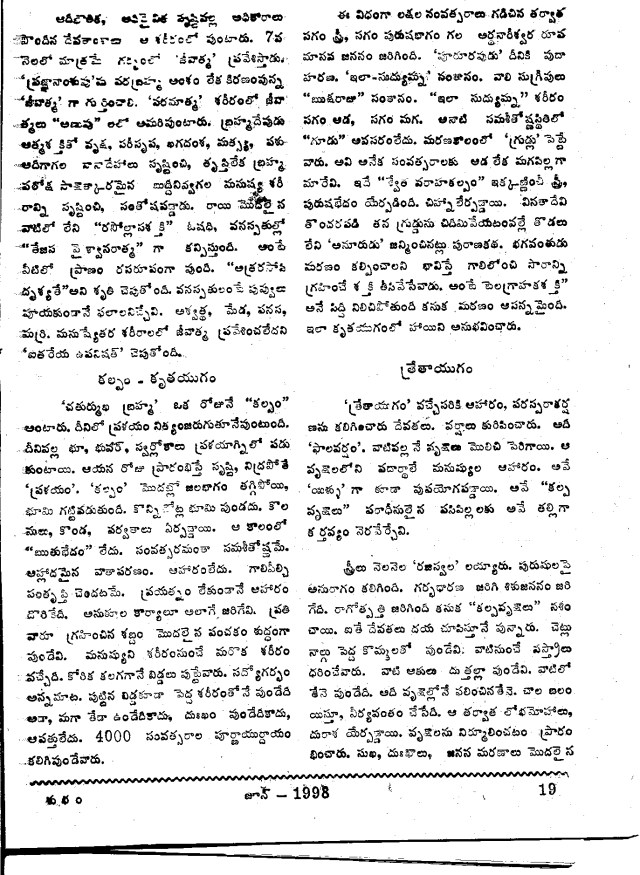 ఆదిభౌతిక, ఆధిదైవిక సృష్టివల్ల అధికారాలు
పొందిన దేవతాంశాలు ఆ శరీరంలో వుంటారు. 7వ
నెలలో మాత్రమే గర్భంలో 'జీవాత్మ' ప్రవేశిస్తాడు.
'ప్రజ్ఞానాంశుపు'మ పరబ్రహ్మ అంశం లేక కిరణంవున్న
'జీవాత్మ' గా గుర్తించాలి. 'పరమాత్మ' శరీరంలో జీవా
త్మలు "అణువు" లలో ఆమరివుంటారు. బ్రహ్మదేవుడు
ఆత్మశక్తితో వృక్ష, సరీసృప, ఖగదంశ, మత్స్య, పశు
ఆదిగాగల నానాదేహాలు సృష్టించి, తృప్తిలేక బ్రహ్మ
పరోక్ష సాక్షాత్కారమైన బుద్ధినివ్వగల మనుష్య శరీ
రాన్ని సృష్టించి, సంతోషపడ్డాడు. రాయి మొదలైన
వాటిలో లేని "రసోల్లాసశక్తి" ఓషధి, వనస్పతుల్లో
"తేజస వైశ్వానరాత్మ" గా కన్పిస్తుంది. అంటే
వీటిలో ప్రాణం రసరూపంగా వుంది. "ఆత్రరసోపి
దృశ్యతే" అని శృతి చెపుతోంది. వనస్పతులంటే పువ్వులు
పూయకుండానే ఫలాలనిచ్చేవి. అశ్వత్థ, మేడ, పనస,
మర్రి. మనుష్యేతర శరీరాలలో జీవాత్మ ప్రవేశించలేదని
'ఐతరేయ ఉపనిషత్' చెపుతోంది.
కల్పం - కృతయుగం
'చతుర్ముఖ బ్రహ్మ' ఒక రోజునే "కల్పం"
అంటారు. దీనిలో ప్రళయం నిత్యంజరుగుతూనేవుంటుంది.
దీనివల్ల భూ, భువర్, స్వర్లోకాలు ప్రళయాగ్నిలో పడు
కుంటాయి. ఆయన రోజు ప్రారంభిస్తే సృష్టి, నిద్రపోతే
'ప్రళయం'. 'కల్పం' మొదట్లో జలభాగం తగ్గిపోయి,
భూమి గట్టిపడుతుంది. కొన్నిచోట్ల భూమి వుండదు. కొల
నులు, కొండ, పర్వకాలు ఏర్పడ్డాయి. ఆ కాలంలో
"ఋతుభేదం" లేదు. సంవత్సరమంతా సమశీతోష్ణమే.
ఆహ్లాదమైన వాతావరణం. ఆహారంలేదు. గాలిపీల్చి
సంతృప్తి చెందటమే. ప్రయత్నం లేకుండానే ఆహారం
దొరికేది. అనుకూల కార్యాలూ అలాగే జరిగేవి. ప్రతి
వారూ గ్రహించిన శబ్దం మొదలైన పంచకం శుద్ధంగా
వుండేవి. మనుష్యుని శరీరంనుంచే మరొక శరీరం
వచ్చేది. కోరిక కలగగానే బిడ్డలు పుట్టేవారు. సద్యోగర్భం
అన్నమాట. పుట్టిన బిడ్డకూడా పెద్ద శరీరంతోనే వుండేది
ఆడా, మగా తేడా ఉండేదికాదు, దుఃఖం వుండేదికాదు,
ఆపత్తులేదు. 4000 సంవత్సరాల పూర్ణాయుర్దాయం
కలిగివుండేవారు.
ఈ విధంగా లక్షల సంవత్సరాలు గడిచిన తర్వాత
సగం స్త్రీ, సగం పురుషభాగం గల అర్ధనారీశ్వర రూప
మానవ జననం జరిగింది. 'పురూరవుడు' దీనికి వుదా
హరణ. 'ఇలా-సుద్యుమ్న' సంతానం. వాలి సుగ్రీవులు
"ఋక్షరాజు" సంతానం. "ఇలా సుద్యుమ్న" శరీరం
సగం ఆడ, సగం మగ. ఆనాటి సమశీతోష్ణస్థితిలో
"గూడు" అవసరంలేదు. మరణకాలంలో 'గ్రుడ్లు' పెట్టే
వారు. అవి అనేక సంవత్సరాలకు ఆడ లేక మగపిల్లగా
మారేవి. ఇదే "స్వేత వరాహకల్పం" ఇక్కణ్ణించీ స్త్రీ,
పురుషభేదం యేర్పడింది. చిహ్నాలేర్పడ్డాయి. వినతాదేవి
తొందరపడి తన గ్రుడ్డును చిదిమివేయటంవల్లే తొడలు
లేని 'అనూరుడు' జన్మించినట్లు పురాణకథ. భగవంతుడు
మరణం కల్పించాలని భావిస్తే గాలిలోంచి సారాన్ని
గ్రహించే శక్తి తీసివేసేవాడు. అంటే "బలగ్రాహకశక్తి"
అనే సిద్ధి నిలిచిపోతుంది కనుక మరణం ఆసన్నమైంది.
ఇలా కృతయుగంలో హాయిని అనుభవించారు.
త్రేతాయుగం
'త్రేతాయుగం' వచ్చేసరికి ఆహారం, పరస్పరాకర్ష
ణను కలిగించారు దేవతలు. వర్షాలు కురిపించారు. ఆది
'ఫాలవర్షం'. వాటివల్లనే వృక్షాలు మొలిచి పెరిగాయి. ఆ
వృక్షాలలోని పదార్థాలే మనుష్యుల ఆహారం. అవే
'యిళ్ళు'గా కూడా వుపయోగపడ్డాయి. అవే "కల్ప
వృక్షాలు" పరాధీనులైన పసిపిల్లలకు అవే తల్లిగా
కర్తవ్యం నెరవేర్చేవి.
స్త్రీలు నెలనెల 'రజస్వల' లయ్యారు. పురుషులపై
అనురాగం కలిగింది. గర్భధారణ జరిగి శిశుజననం జరి
గేది. రాగోత్పత్తి జరిగింది కనుక "కల్పవృక్షాలు" నశిం
చాయి. ఐతే దేవతలు దయ చూపిస్తూనే వున్నారు. చెట్లు
నాల్గు పెద్ద కొమ్మలతో వుండేవి. వాటినుంచే వస్త్రాలు
ధరించేవారు. వాటి ఆకులు దుత్తల్లా వుండేవి. వాటిలో
తేనె వుండేది. అది వృక్షాల్లోనే ఫలించినతేనే. చాల బలం
యిస్తూ, వీర్యవంతం చేసేది. ఆ తర్వాత లోభమోహాలు,
దురాశ యేర్పడ్డాయి. వృక్షాలను నిర్మూలించటం ప్రారం
భించారు. సుఖ, దుఃఖాలు, జనన మరణాలు మొదలైన
శుభం
జూన్ - 1998
19